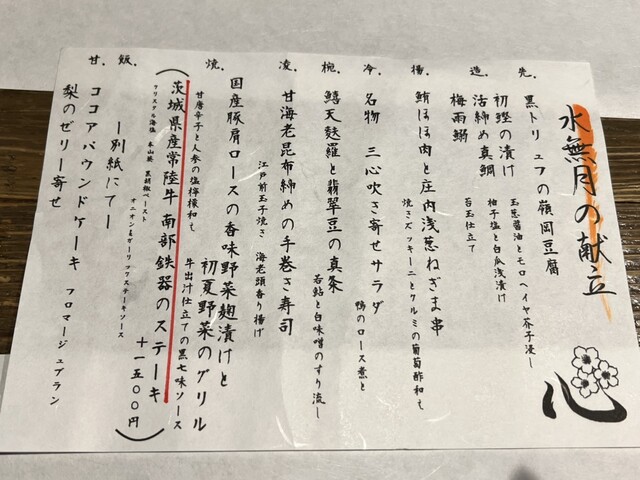 水無月の献立
心
先.
黒トリュフの嶺岡豆腐
玉葱醤油とモロヘイヤ芥子浸し
造.
初鰹の漬け
柚子塩と白瓜浅漬け
活締め真鯛
苔玉仕立て
梅雨鰯
揚.
鮪ほほ肉と庄内浅葱ねぎま串
焼きズッキーニとケルミの葡萄酢和も
冷.
名物 三心吹き寄せサラダ
鴨のロース煮と
椀.
鱚天麩羅と翡翠豆の真茶
若鮎と白味噌のすり流し
凌.
甘海老昆布締めの手巻き寿司
江戸前玉子焼き 海老頭香り揚げ
焼.
国産豚肩ロースの香味野菜麹漬けと
初夏野菜のグリル
甘唐辛子と人参の塩檸檬和も
牛出汁仕立ての黒七味ソース
(茨城県産常陸牛 南部鉄器のステーキ
クリスタル海塩 本山葵 黒胡椒ペースト
オニオン&ガーリックステーキソース
+一五〇〇円)
飯.
ー別紙にてー
甘.
ココアパウンドケーキ フロマージュブラン
梨のゼリー寄せ